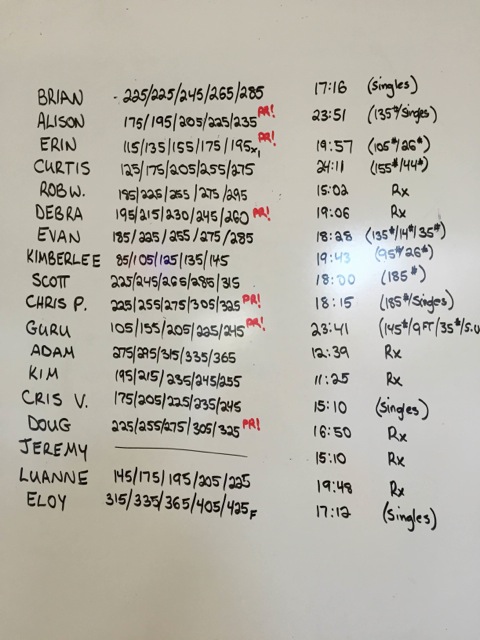 BRIAN - 225/225/245/265/285 17:16 (Singles)
ALISON 175/195/205/225/235 PR! 23:51 (135#/Singles)
ERIN 115/135/155/175/195x1 PR! 19:57 (105#/26#)
CURTIS 125/175/205/255/275 24:11 (155#/44#)
ROB W. 185/225/255/275/295 15:02 Rx
DEBRA 195/215/230/245/260 PR! 19:06 Rx
EVAN 185/225/255/275/285 18:28 (135#/14#/35#)
KIMBERLEE 85/105/125/135/145 19:43 (95#/26#)
SCOTT 225/245/265/285/315 18:00 (185#)
CHRIS P. 225/255/275/305/325 PR! 18:15 (185#/Singles)
GURU 105/155/205/225/245 PR! 23:41 (145#/9FT/35#/S.U
ADAM 275/295/315/335/365 12:39 Rx
KIM 195/215/235/245/255 11:25 Rx
CRIS V. 175/205/225/235/245 15:10 (Singles)
DOUG 225/255/275/305/325 PR! 16:50 Rx
JEREMY 15:10 Rx
LUANNE 145/175/195/205/225 19:48 Rx
ELOY 315/335/365/405/425F 17:12 (Singles)